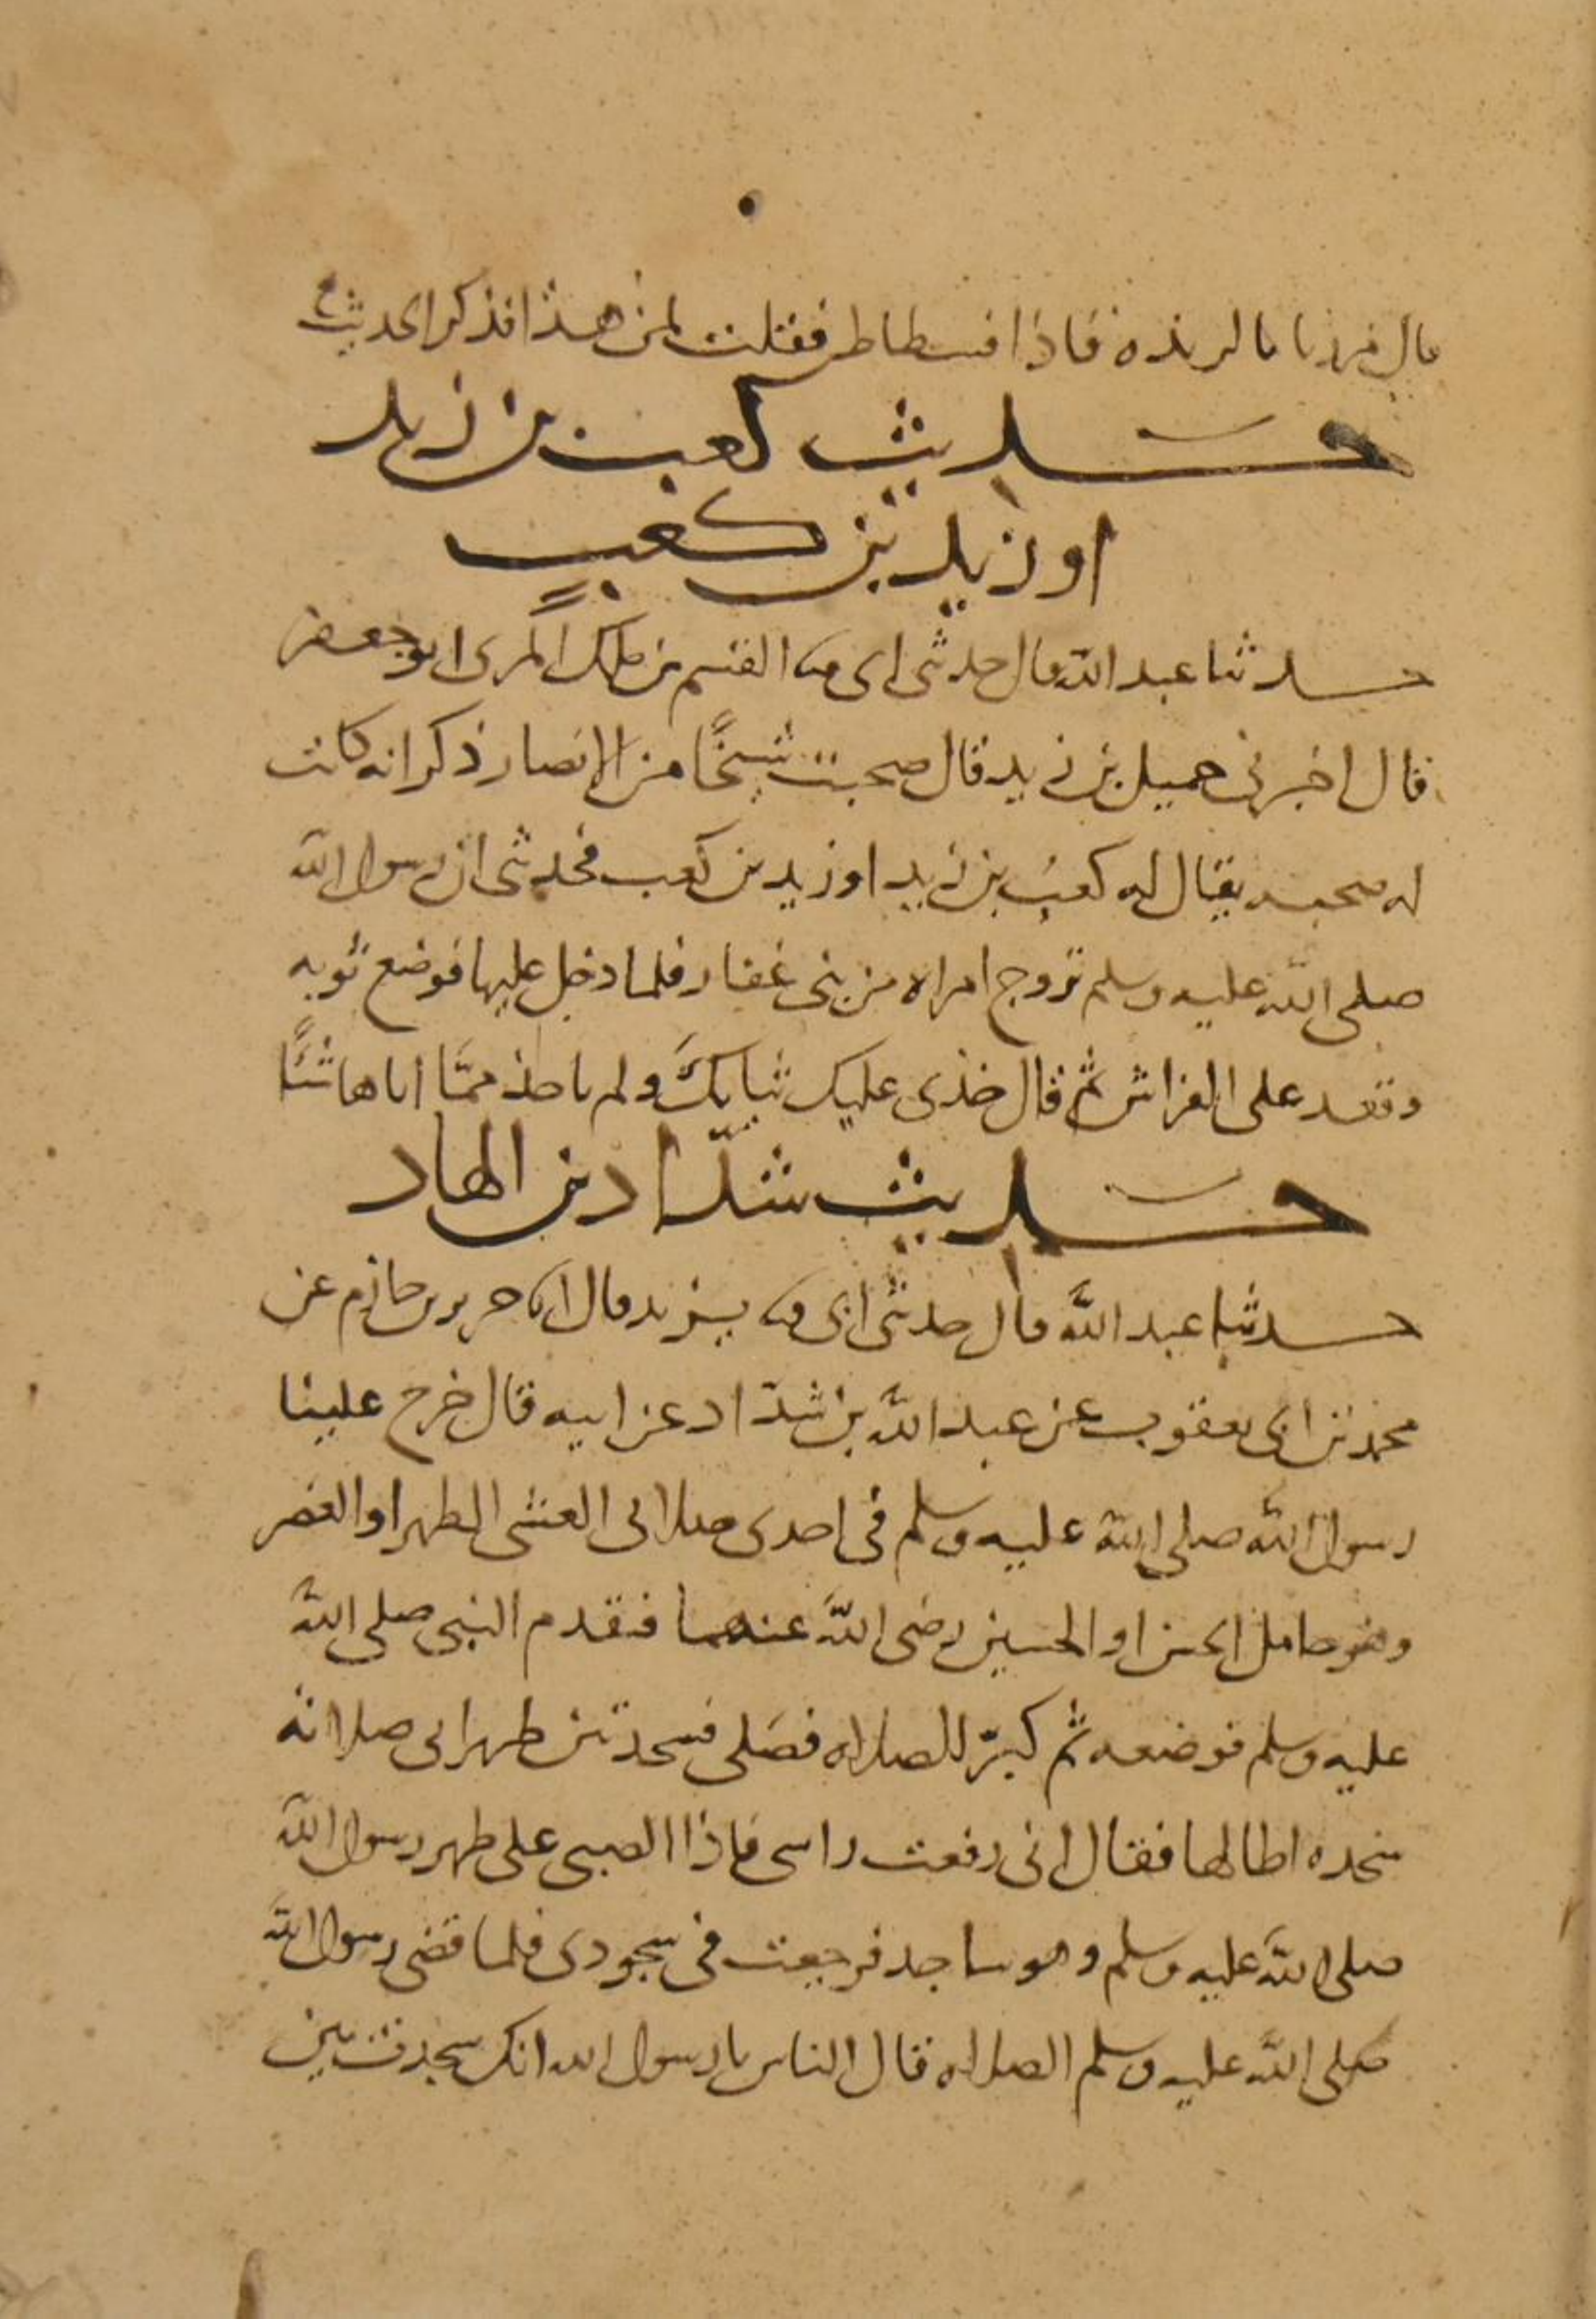 قال مررنا بالربذه فاذا فسطاط فقلت لمن هذا فذكر الحديث
حديث كعب بن زيد
او زيد بن كعب
حدثنا عبد الله قال حدثنى ابى القسم بن ملك المرى ابو جعفر
قال اخبرنى جميل بن زيد قال صحبت شيخًا من الانصار ذكر انه كانت
له صحبه يقال له كعب بن زيد او زيد بن كعب فحدثنى ان رسول الله
صلى الله عليه وسلم تزوج امراه من بنى غفار فلما دخل عليها فوضع ثوبه
وقعد على الفراش ثم قال خذى عليك ثيابك ولم ياخذ ممّا اتاها شئًا
حديث شدّاد بن الهاد
حدثنا عبد الله قال حدثنى ابى يزيد قال انا جرير بن حازم عن
محمد بن ابى يعقوب عن عبد الله بن شدّاد عن ابيه قال خرج علينا
رسول الله صلى الله عليه وسلم فى احدى صلاتى العشى الظهر او العصر
وهو حامل الحسن او الحسين رضى الله عنهما فتقدم النبى صلى الله
عليه وسلم فوضعه ثم كبّر للصلاه فصَلى فسجد بين ظهرانى صلاته
سجده اطالها فقال انى رفعت راسى فاذا الصبى على ظهر رسول الله
صلى الله عليه وسلم وهو ساجد فرجعت فى سجودى فلما قضى رسول الله
صلى الله عليه وسلم الصلاه قال الناس يا رسول الله انك سجدت بين